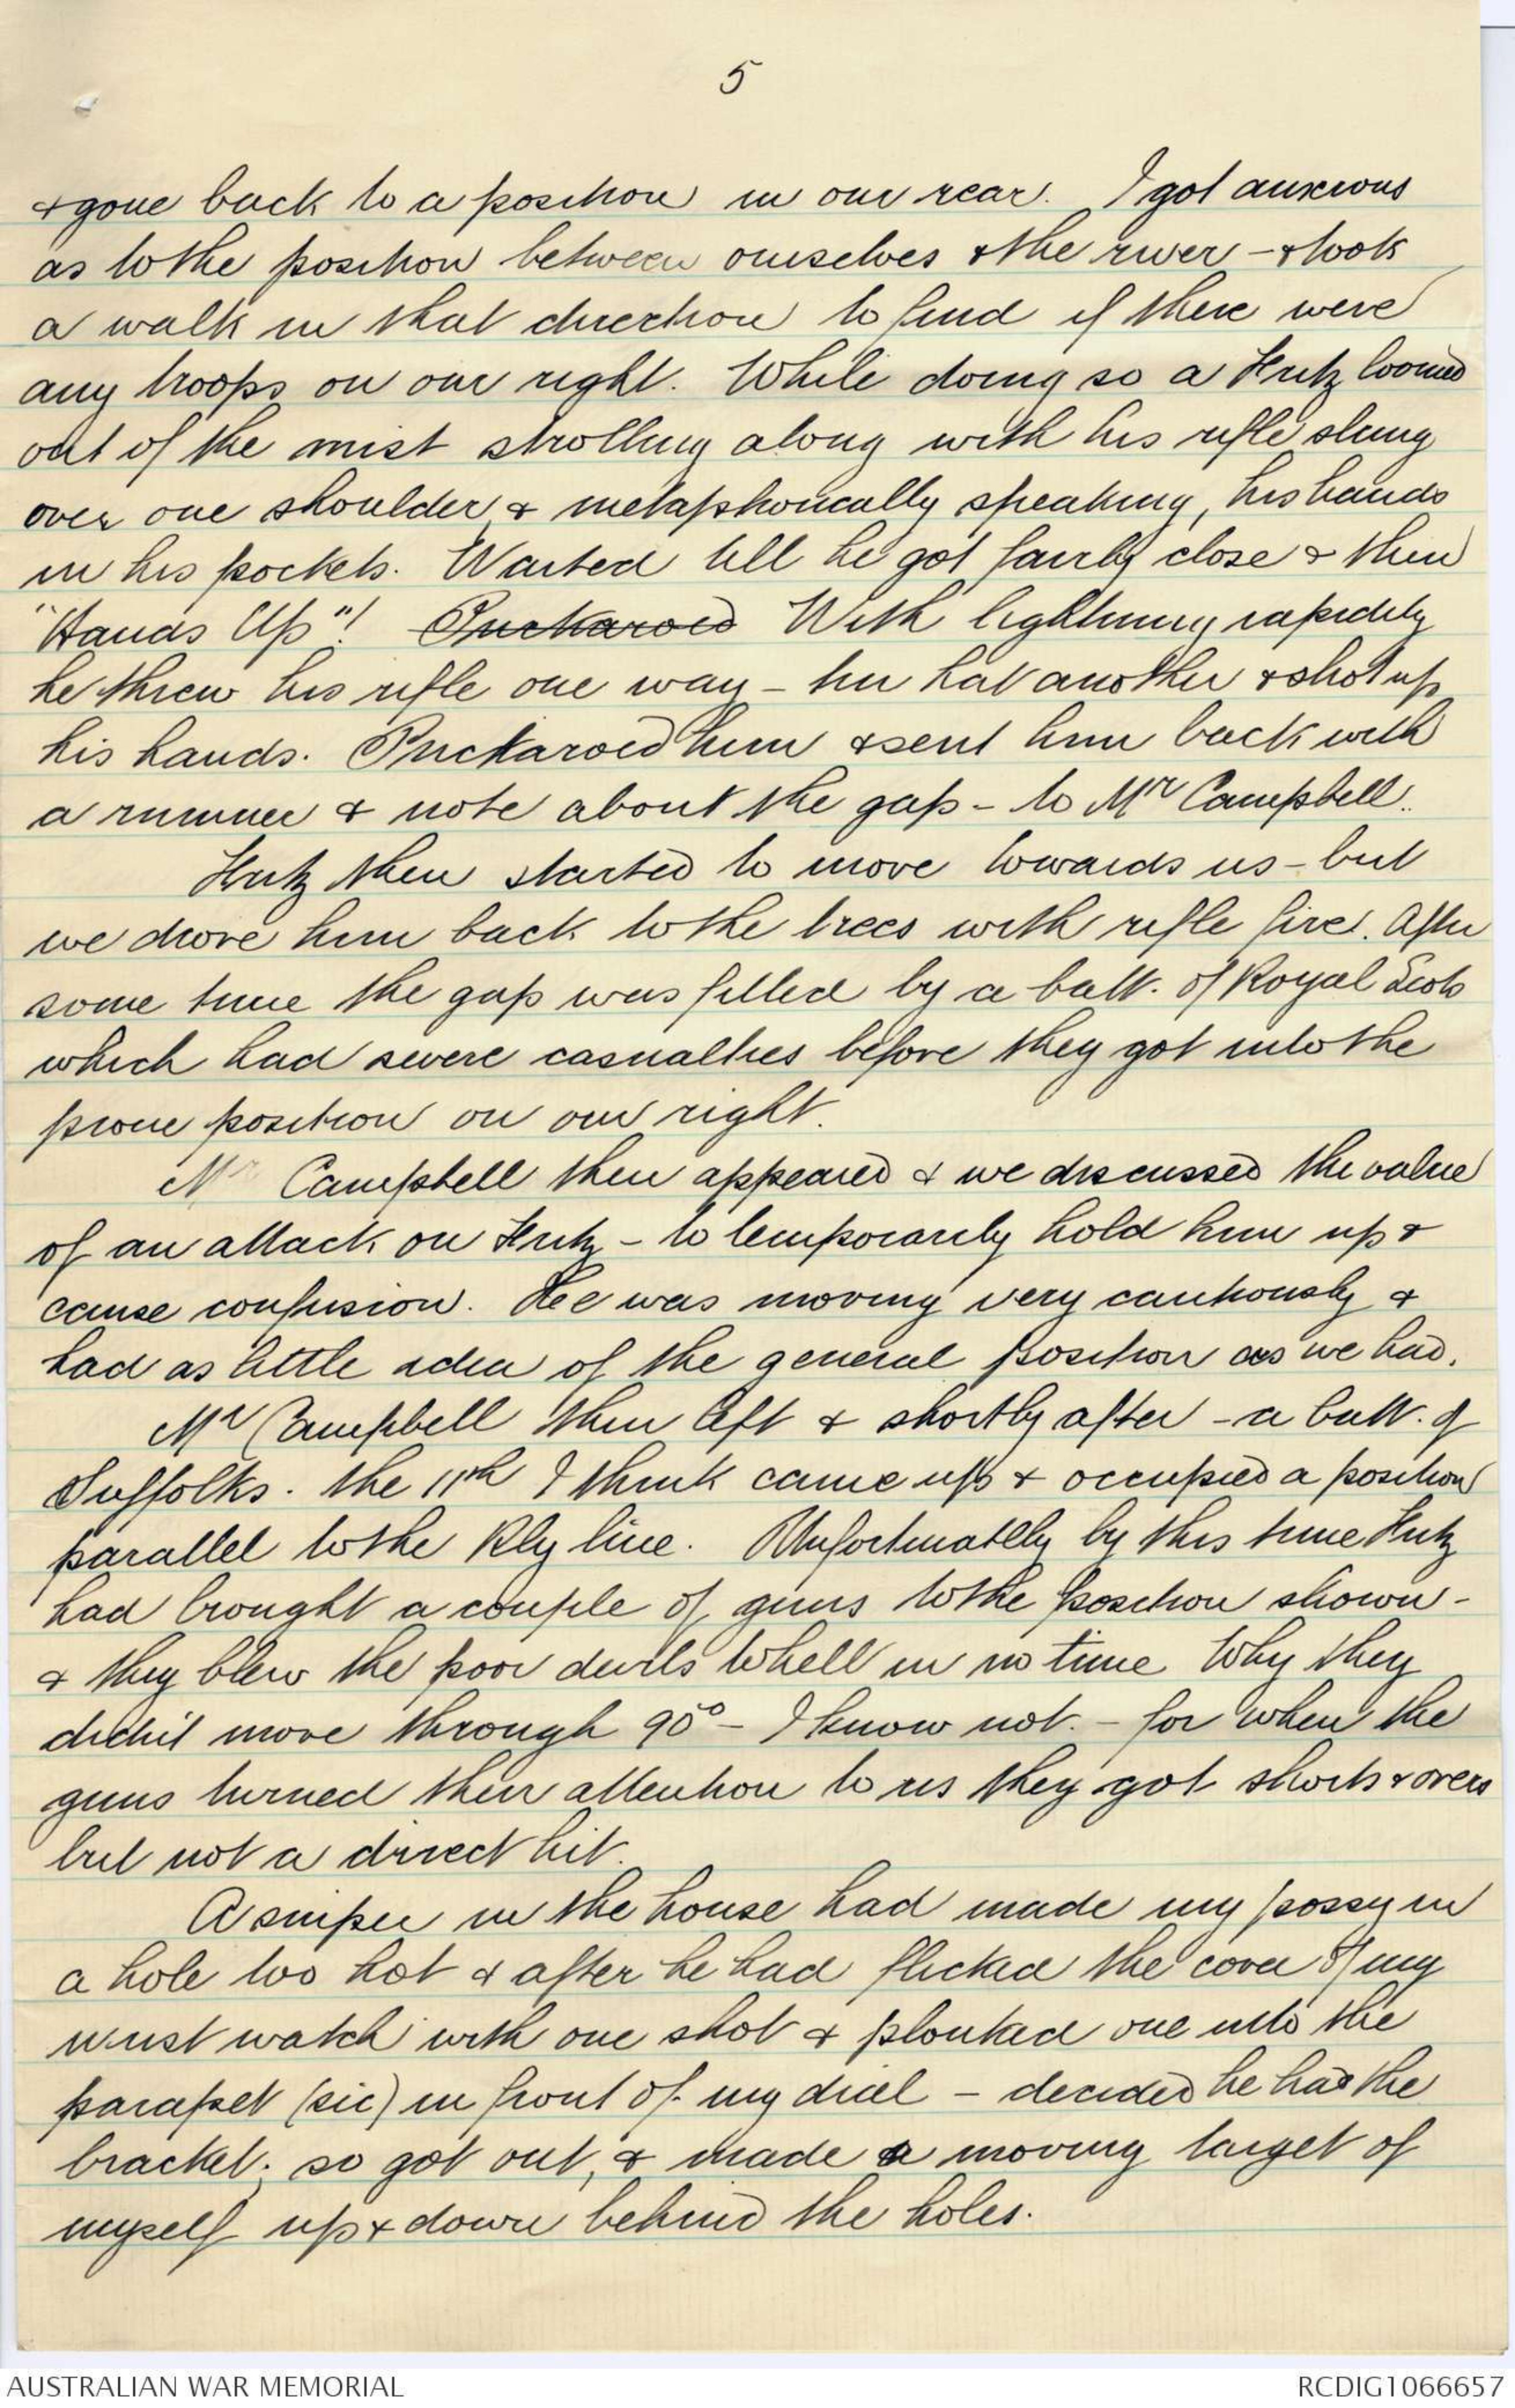 5
& gone back to a position in our rear. I got anxious
as to the position between ourselves & the river - & took
a walk in that direction to find if there were
any troops on our right. While doing so a Fritz loomed
out of the mist strolling along with his rifle slung
over one shoulder & metaphorically speaking, his hands
in his pockets. Waited till he got fairly close & then
"Hands Up"! Puckaroed With lightning rapidity
he threw his rifle one way - tin hat another & shot up
his hands. Puckaroed him & sent him back with
a runner & note about the gap - to Mr Campbell.
Fritz then started to move towards us - but
we drove him back to the trees with rifle fire. After
some time the gap was filled by a batt. of Royal Scots
which had severe casualties before they got into the
prone position on our right.
Mr Campbell then appeared & we discussed the value
of an attack on Fritz - to temporarily hold him up &
cause confusion. He was moving very cautiously &
had as little idea of the general position as we had.
Mr Campbell then left & shortly after - a batt. of
Suffolks. the 11th I think came up & occupied a position
parallel to the Rly line. Unfortunately by this time Fritz
had brought a couple of guns to the position shown -
& they blew the poor devils to hell in no time Why they
didn't move through 90° - I know not. - for when the
guns turned their attention to us they got shorts & overs
but not a direct hit.
A sniper in the house had made my possy in
a hole too hot & after he had flicked the cover of my
wrist watch with one shot & plonked one into the
parapet (sic) in front of my dial - decided he had the
bracket. so got out, & made a moving target of
myself up & down behind the holes.
AUSTRALIAN WAR MEMORIAL
RCDIG1066657